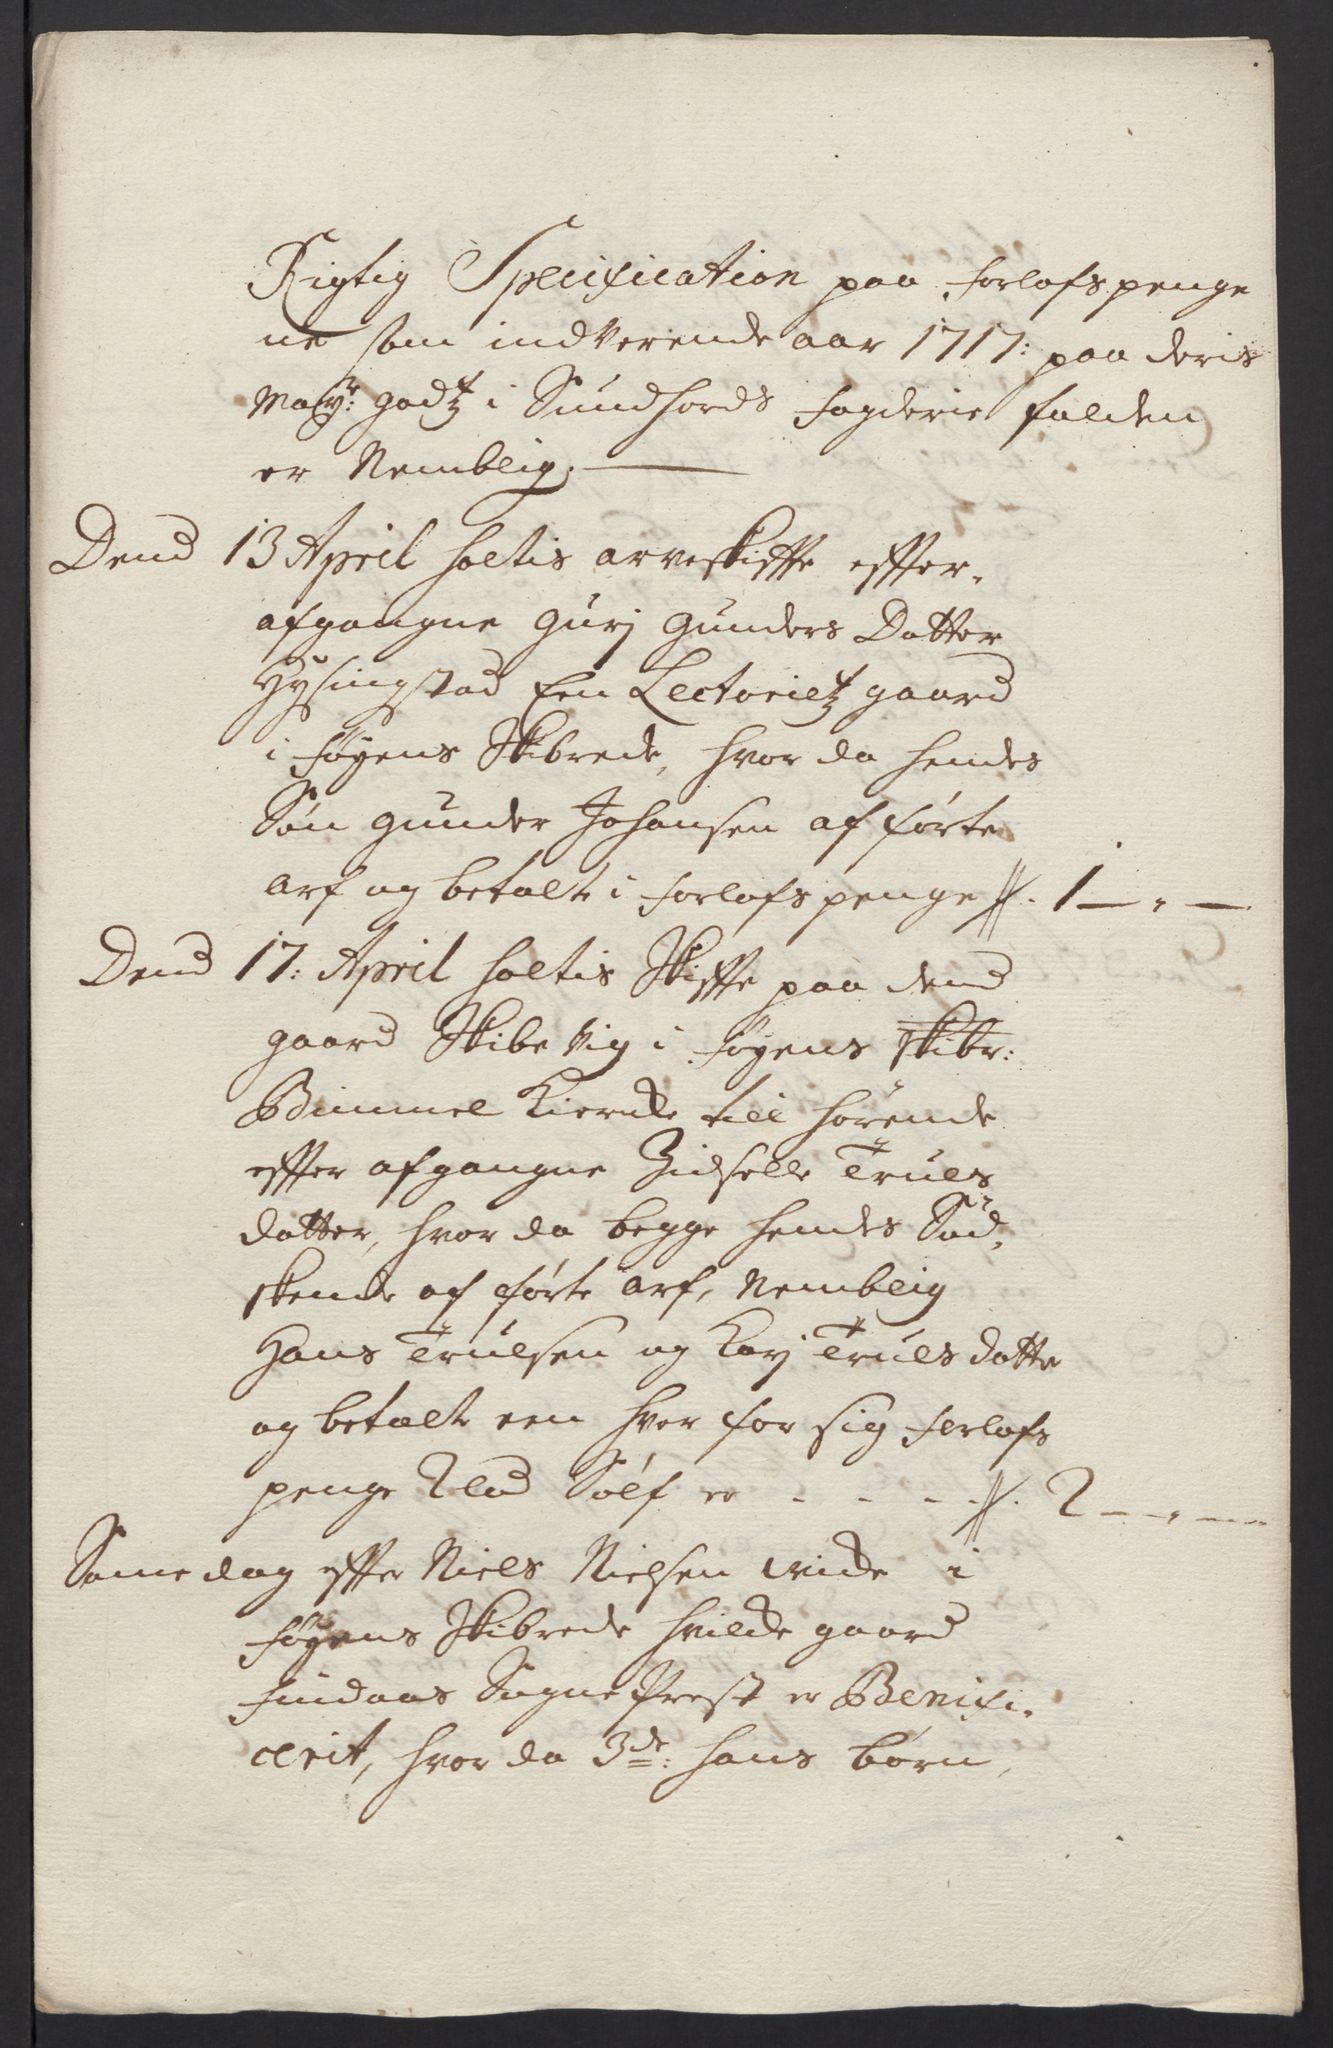 Rigtig Specification paa forlofspenge
ne som indverende aar 1717: paa deris
Mayr: godtz i Sundhords fogderie falden
er Nemblig.
Dend 13 April holtis arveskiffte effter
afgangne Gurj Gunders Datter
Hysingstad Een Lectorietz gaard
i føyens Skibrede, hvor da hendes
Søn Gunder Johansen af førte
arf og betalt i forlofspenge 1 –„–
Dend 17: April holtis Skiffte paa dend
gaard Skibe Vig i føyens Skibr:
Bømmel Kierke till hørende
effter afgangne Zidselle Truels
datter, hvor da begge hendes Sød-
skende af førte arf, Nemblig
Hans Truelsen og Karj Truels datter
og betalt een hver for sig forlofs
penge 2 lod Sølf er - - - - 2 –„–
Samme dag effter Niels Nielsen Vide i
føyens Skibrede hvilde gaard
findaas Sogne Prest er Benifi-
cerit, hvor da 3de: hans børn